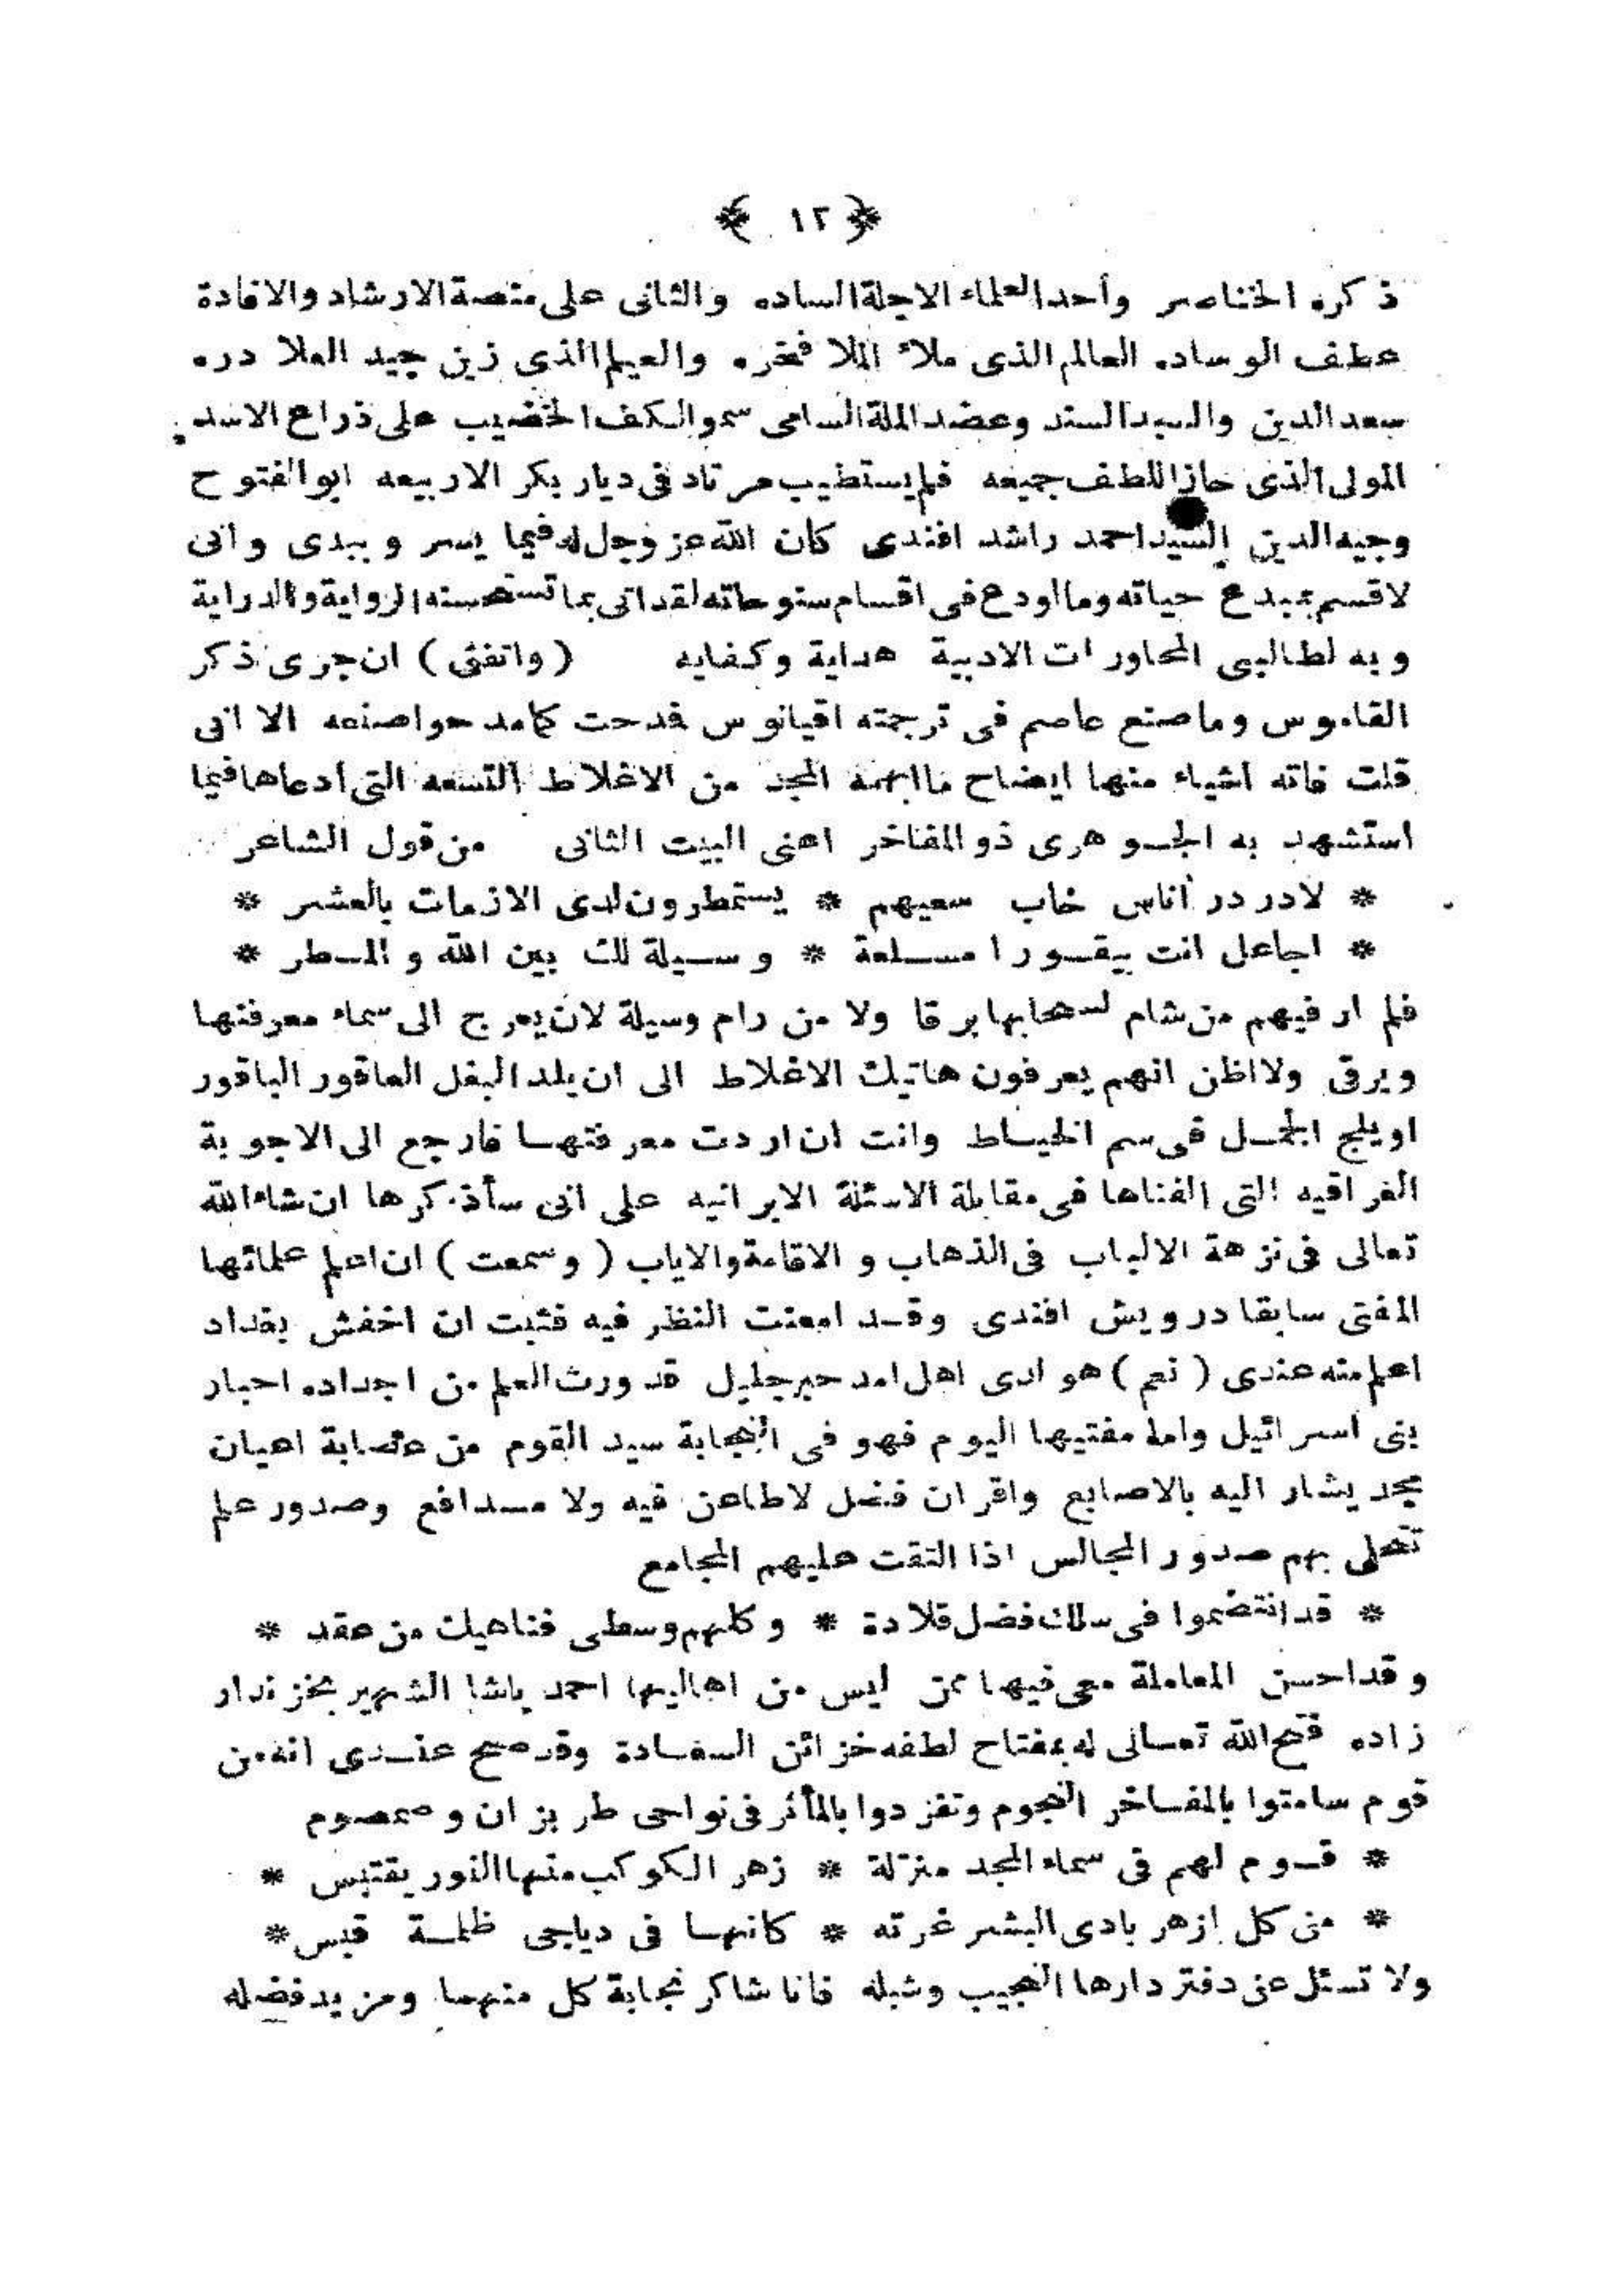 ﴿ ١٢ ﴾
ذكره الخناصر وأحد العلماء الاجلة الساده والثانى على منصة الارشاد والافادة
عطف الوساده العالم الذى ملاء الملا فخره والعيلم الذى زين جيد العلا دره
سعد الدين والسيد السند وعضد الملة السامى سمو الكف الخضيب على ذراع الاسد
المولى الذى حاز اللطف جميعه فلم يستطيب مرتاد فى ديار بكر الاربيعه ابو الفتوح
وجيه الدين السيد احمد راشد افندى كان الله عز وجل له فيما يسر ويبدى وانى
لاقسم بمبدع حياته وما اودع فى اقسام سنوحاته لقد اتى بما تستحسنه الرواية والدراية
وبه لطالبى المحاورات الادبية هداية وكفايه (واتفق) ان جرى ذكر
القاموس وما صنع عاصم فى ترجمته اقيانوس فمدحت كامد حوا صنعه الا انى
قلت فاته اشياء منها ايضاح ما ابهمه المجد من الاغلاط التسعه التى ادعاها فيما
استشهد به الجوهرى ذو المفاخر اعنى البيت الثانى من قول الشاعر
* لادر در أناس خاب سعيهم * يستمطرون لدى الازمات بالعشر *
* اجاعل انت بيقورا مسلعة * وسيلة لك بين الله والمطر *
فلم ار فيهم من شام لسحابها برقا ولا من رام وسيلة لان يعرج الى سماء معرفتها
ويرقى ولا اظن انهم يعرفون هاتيك الاغلاط الى ان يلد البغل العاقور الباقور
او يلج الجمل فى سم الخياط وانت ان اردت معرفتها فارجع الى الاجوبة
العراقيه التى الفناها فى مقابلة الاسئلة الايرانيه على انى سأذكرها ان شاء الله
تعالى فى نزهة الالباب فى الذهاب والاقامة والاياب (وسمعت) ان اعلم علمائها
المفتى سابقا درويش افندى وقد امعنت النظر فيه فثبت ان اخفش بغداد
اعلم منه عندى (نعم) هو لدى اهل امد حبر جليل قد ورث العلم من اجداده احبار
بنى اسرائيل واما مفتيها اليوم فهو فى النجابة سيد القوم من عصابة اعيان
مجد يشار اليه بالاصابع واقران فضل لاطاعن فيه ولا مدافع وصدور علم
تتحلى بهم صدور المجالس اذا التقت عليهم المجامع
* قد انتضموا فى سلك فضل قلادة * وكلهم وسطى فناهيك من عقد *
وقد احسن المعاملة معى فيها ممن ليس من اهاليها احمد پاشا الشهير بخزندار
زاده فتح الله تعالى له بمفتاح لطفه خزائن السعادة وقد صح عندى انه من
قوم سامتوا بالمفاخر النجوم وتفردوا بالمأثر فى نواحى طربزان وصمصوم
* قوم لهم فى سماء المجد منزلة * زهر الكوكب منها النور يقتبس *
* من كل ازهر بادى البشر غرته * كانها فى دياجى ظلمة قبس *
ولا تسئل عن دفتردارها النجيب وشبله فانا شاكر نجابة كل منهما ومزيد فضله